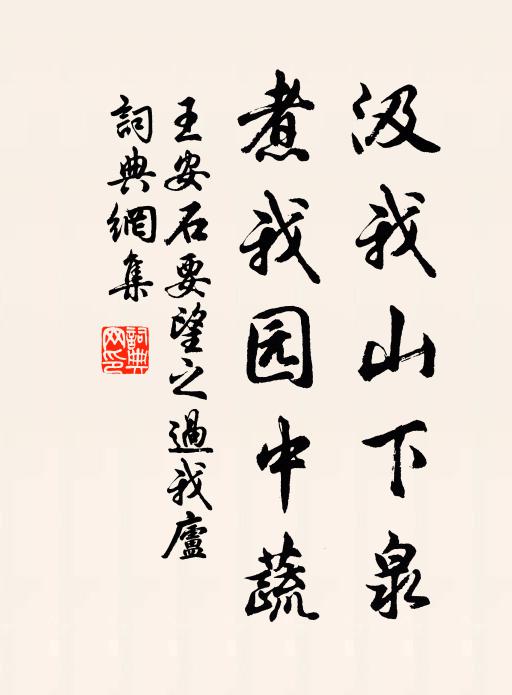 汲我山下泉
煮我园中蔬
王安石要望之過我廬
詞典網集
詞典网印